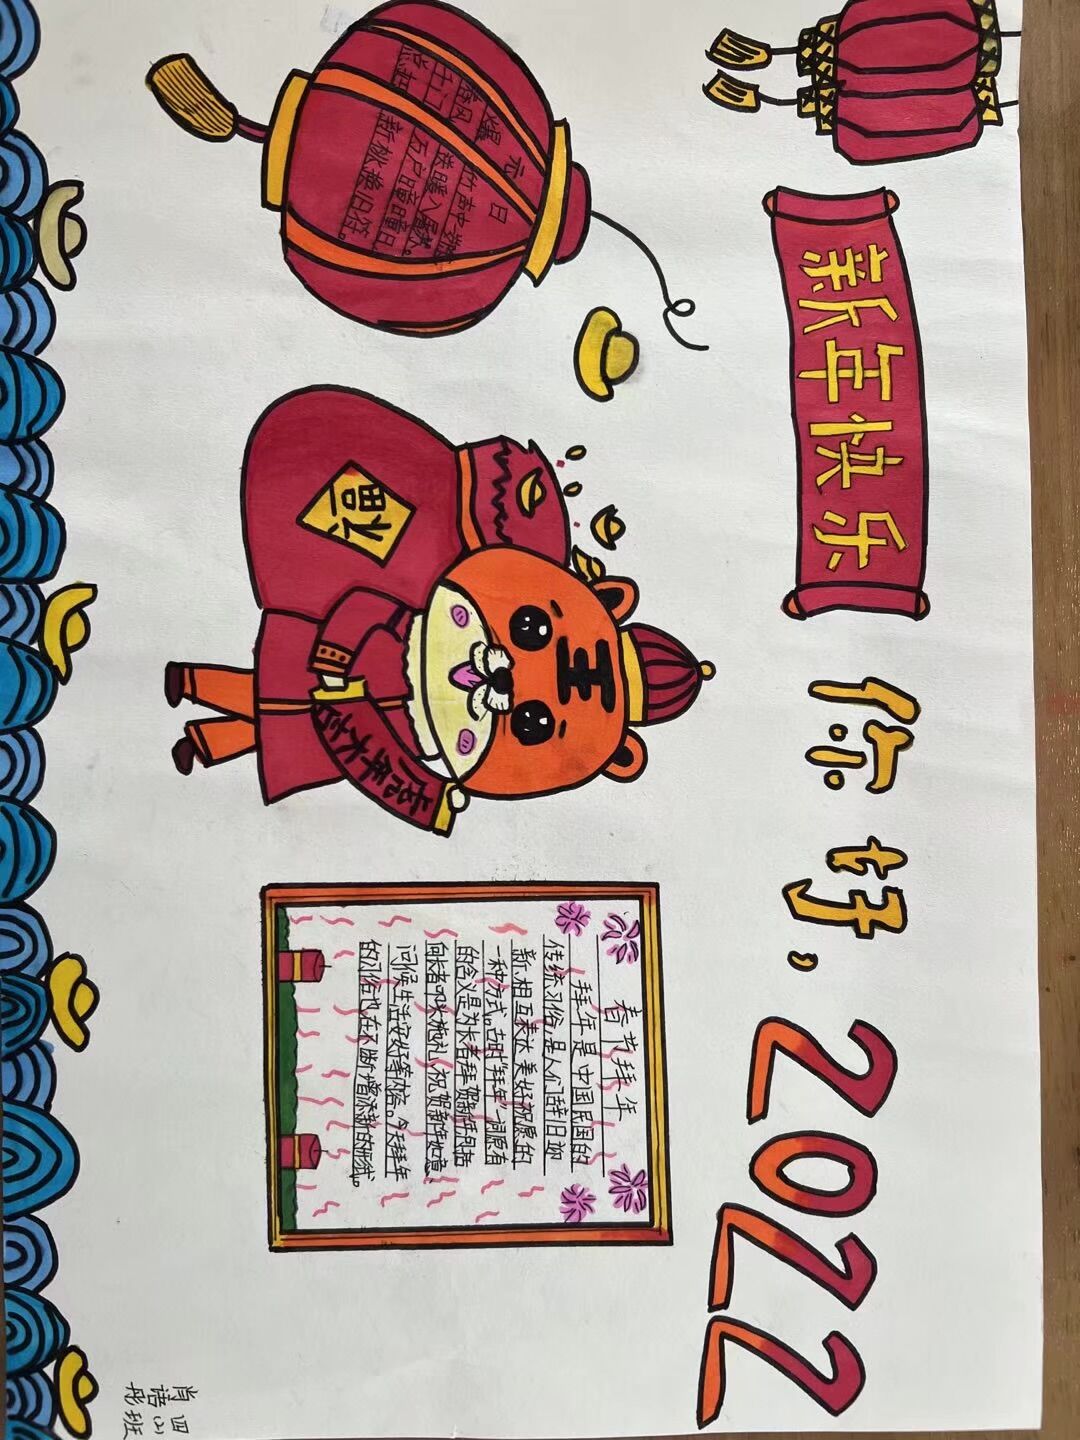 新年快乐
你好,2022
元日
爆竹声中一岁除
春风送暖入屠苏。
千门万户曈曈日
总把新桃换旧符。
王
福
虎年大吉
春节拜年
拜年是中国民国的
传统习俗,是人们辞旧迎
新、相互表达美好祝愿的
一种方式。古时“拜年”一词原有
的含义是为长者拜贺新年,包括
向长者叩头施礼、祝贺新年如意、
问候生活安好等内容。今天拜年
的习俗也在不断增添新的形式。
四 班
肖语彤